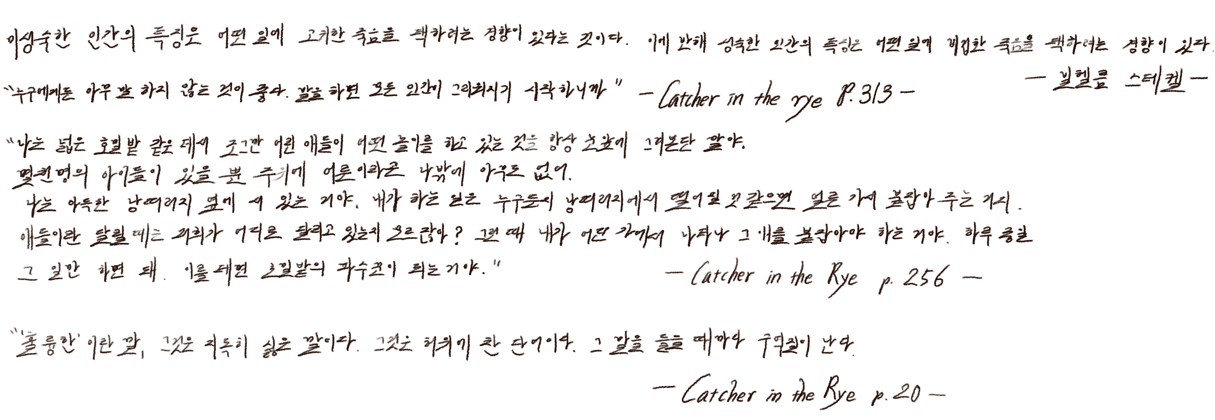 미성숙한 인간의 특징은 어떤 일에 고귀한 죽음을 택하려는 경향이 있다는 것이다. 이에 반해 성숙한 인간의 특징은 어떤 일에 비겁한 죽음을 택하려는 경향이 있다.
— 빌헬름 스테켈 —
"누구에게든 아무 말 하지 않는 것이 좋다. 말을 하면 모든 인간이 그리워지기 시작하니까" — Catcher in the rye P.313 —
"나는 넓은 호밀밭 같은 데서 조그만 어린 애들이 어떤 놀이를 하고 있는 것을 항상 눈앞에 그려본단 말야.
몇천명의 아이들이 있을 뿐 주위에 어른이라곤 나밖에 아무도 없어.
나는 아득한 낭떠러지 옆에 서 있는 거야. 내가 하는 일은 누구든지 낭떠러지에서 떨어질 것 같으면 얼른 가서 붙잡아 주는 거지.
애들이란 달릴 때는 저희가 어디로 달리고 있는지 모르잖아? 그런 때 내가 어딘가에서 나타나 그 애를 붙잡아야 하는 거야. 하루 종일
그 일만 하면 돼. 이를 테면 호밀밭의 파수꾼이 되는 거야." — Catcher in the Rye p. 256 —
"'훌륭한' 이란 말, 그것은 지독히 싫은 말이다. 그것은 허위에 찬 단어이다. 그 말을 들을 때마다 구역질이 난다.
— Catcher in the Rye p. 20 —